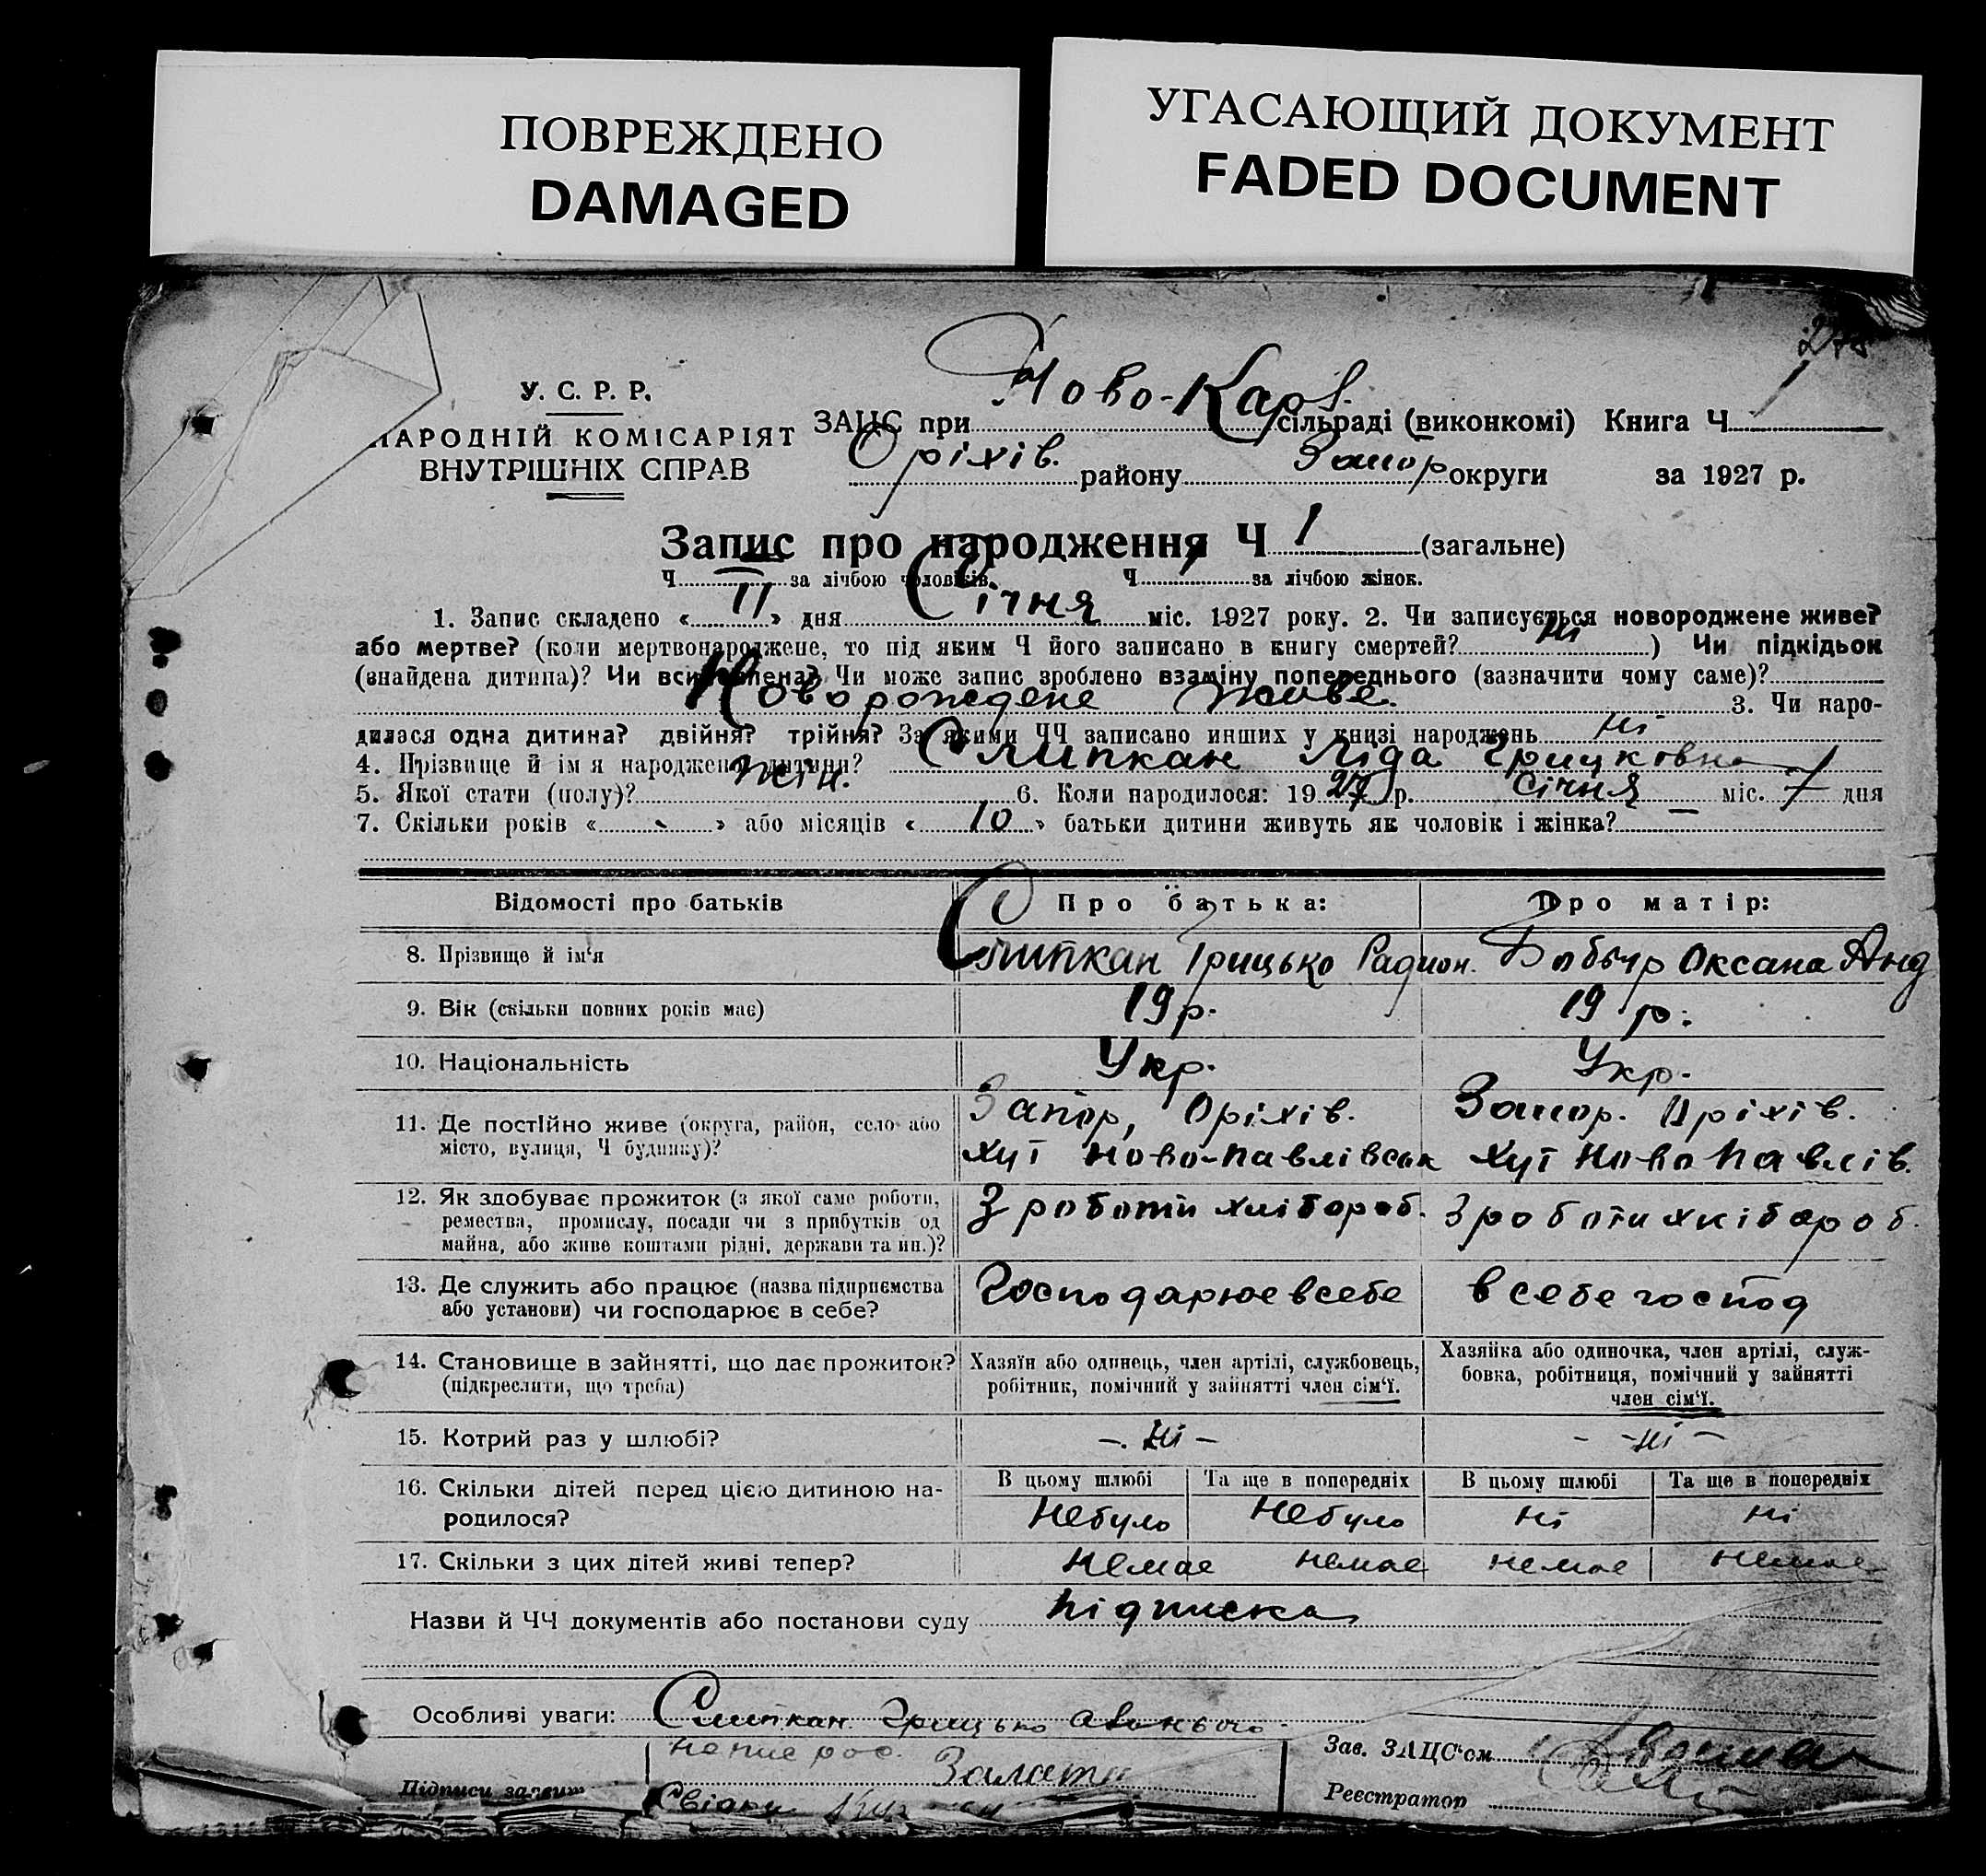 ПОВРЕЖДЕНО
DAMAGED
УГАСАЮЩИЙ ДОКУМЕНТ
FADED DOCUMENT
У. С. Р. Р.
НАРОДНІЙ КОМІСАРІЯТ
ВНУТРІШНІХ СПРАВ
ЗАЦС при Ново-Карл. сільраді (виконкомі) Книга Ч 1
Оріхів. району Запор округи за 1927 р.
Запис про народження Ч 1 (загальне)
Ч за лічбою чоловіків. Ч 1 за лічбою жінок.
1. Запис складено « 11 » дня Січня міс. 1927 року. 2. Чи записується новороджене живе?
або мертве? (коли мертвонароджене, то під яким Ч його записано в книгу смертей? ні ) Чи підкідьок
(знайдена дитина)? Чи всиновлена? Чи може запис зроблено взаміну попереднього (зазначити чому саме)?
Новорождене живе. 3. Чи наро-
дилася одна дитина? двійня? трійня? За якими ЧЧ записано инших у книзі народжень ні
4. Прізвище й ім я народженої дитини? Слипкан Ліда Грицковна
5. Якої стати (полу)? жін. 6. Коли народилося: 19 27 р. Січня міс. 7 дня
7. Скільки років « - » або місяців « 10 » батьки дитини живуть як чоловік і жінка? —
Відомості про батьків Про батька: Про матір:
8. Прізвище й ім'я Слипкан Грицько Радион. Бабыр Оксана Анд
9. Вік (скільки повних років має) 19 р. 19 р.
10. Національність Укр. Укр.
11. Де постійно живе (округа, район, село або Запор, Оріхів. Запор. Оріхів.
місто, вулиця, Ч будинку)? хут Ново-Павлівськ хут Ново Павлів.
12. Як здобуває прожиток (з якої саме роботи, З роботи хлібороб. З роботи хлібороб.
ремества, промислу, посади чи з прибутків од
майна, або живе коштами рідні, держави та ин.)?
13. Де служить або працює (назва підприємства Господарює в себе в себе господ
або установи) чи господарює в себе?
14. Становище в зайнятті, що дає прожиток? Хазяїн або одинець, член артілі, службовець, Хазяйка або одиночка, член артілі, служ-
(підкреслити, що треба) робітник, помічний у зайнятті член сім'ї. бовка, робітниця, помічний у зайнятті
член сім'ї.
15. Котрий раз у шлюбі? - ні - - ні -
16. Скільки дітей перед цією дитиною на- В цьому шлюбі Та ще в попередніх В цьому шлюбі Та ще в попередніх
родилося? Небуло Небуло ні ні
17. Скільки з цих дітей живі тепер? немає немає немає немає
Назви й ЧЧ документів або постанови суду підписка
Особливі уваги: Слипкан Грицько
Зав. ЗАЦС'ом
Підписи заявит
Реєстратор